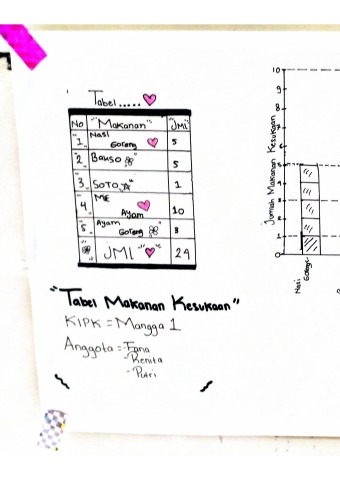 Tabel.....
No "Makanan" "JMl"
1. Nasi Goreng 5
2. Bakso 5
3. SOTO 1
4. MIE Ayam 10
5. Ayam Goreng 3
JMl 24
"Tabel Makanan Kesukaan"
KlPK = Mangga 1
Anggota = - Fana
- Renita
- Putri
Jumlah Makanan Kesukaan
10
9
8
7
6
5
4
3
2
1
0
Nasi Goreng